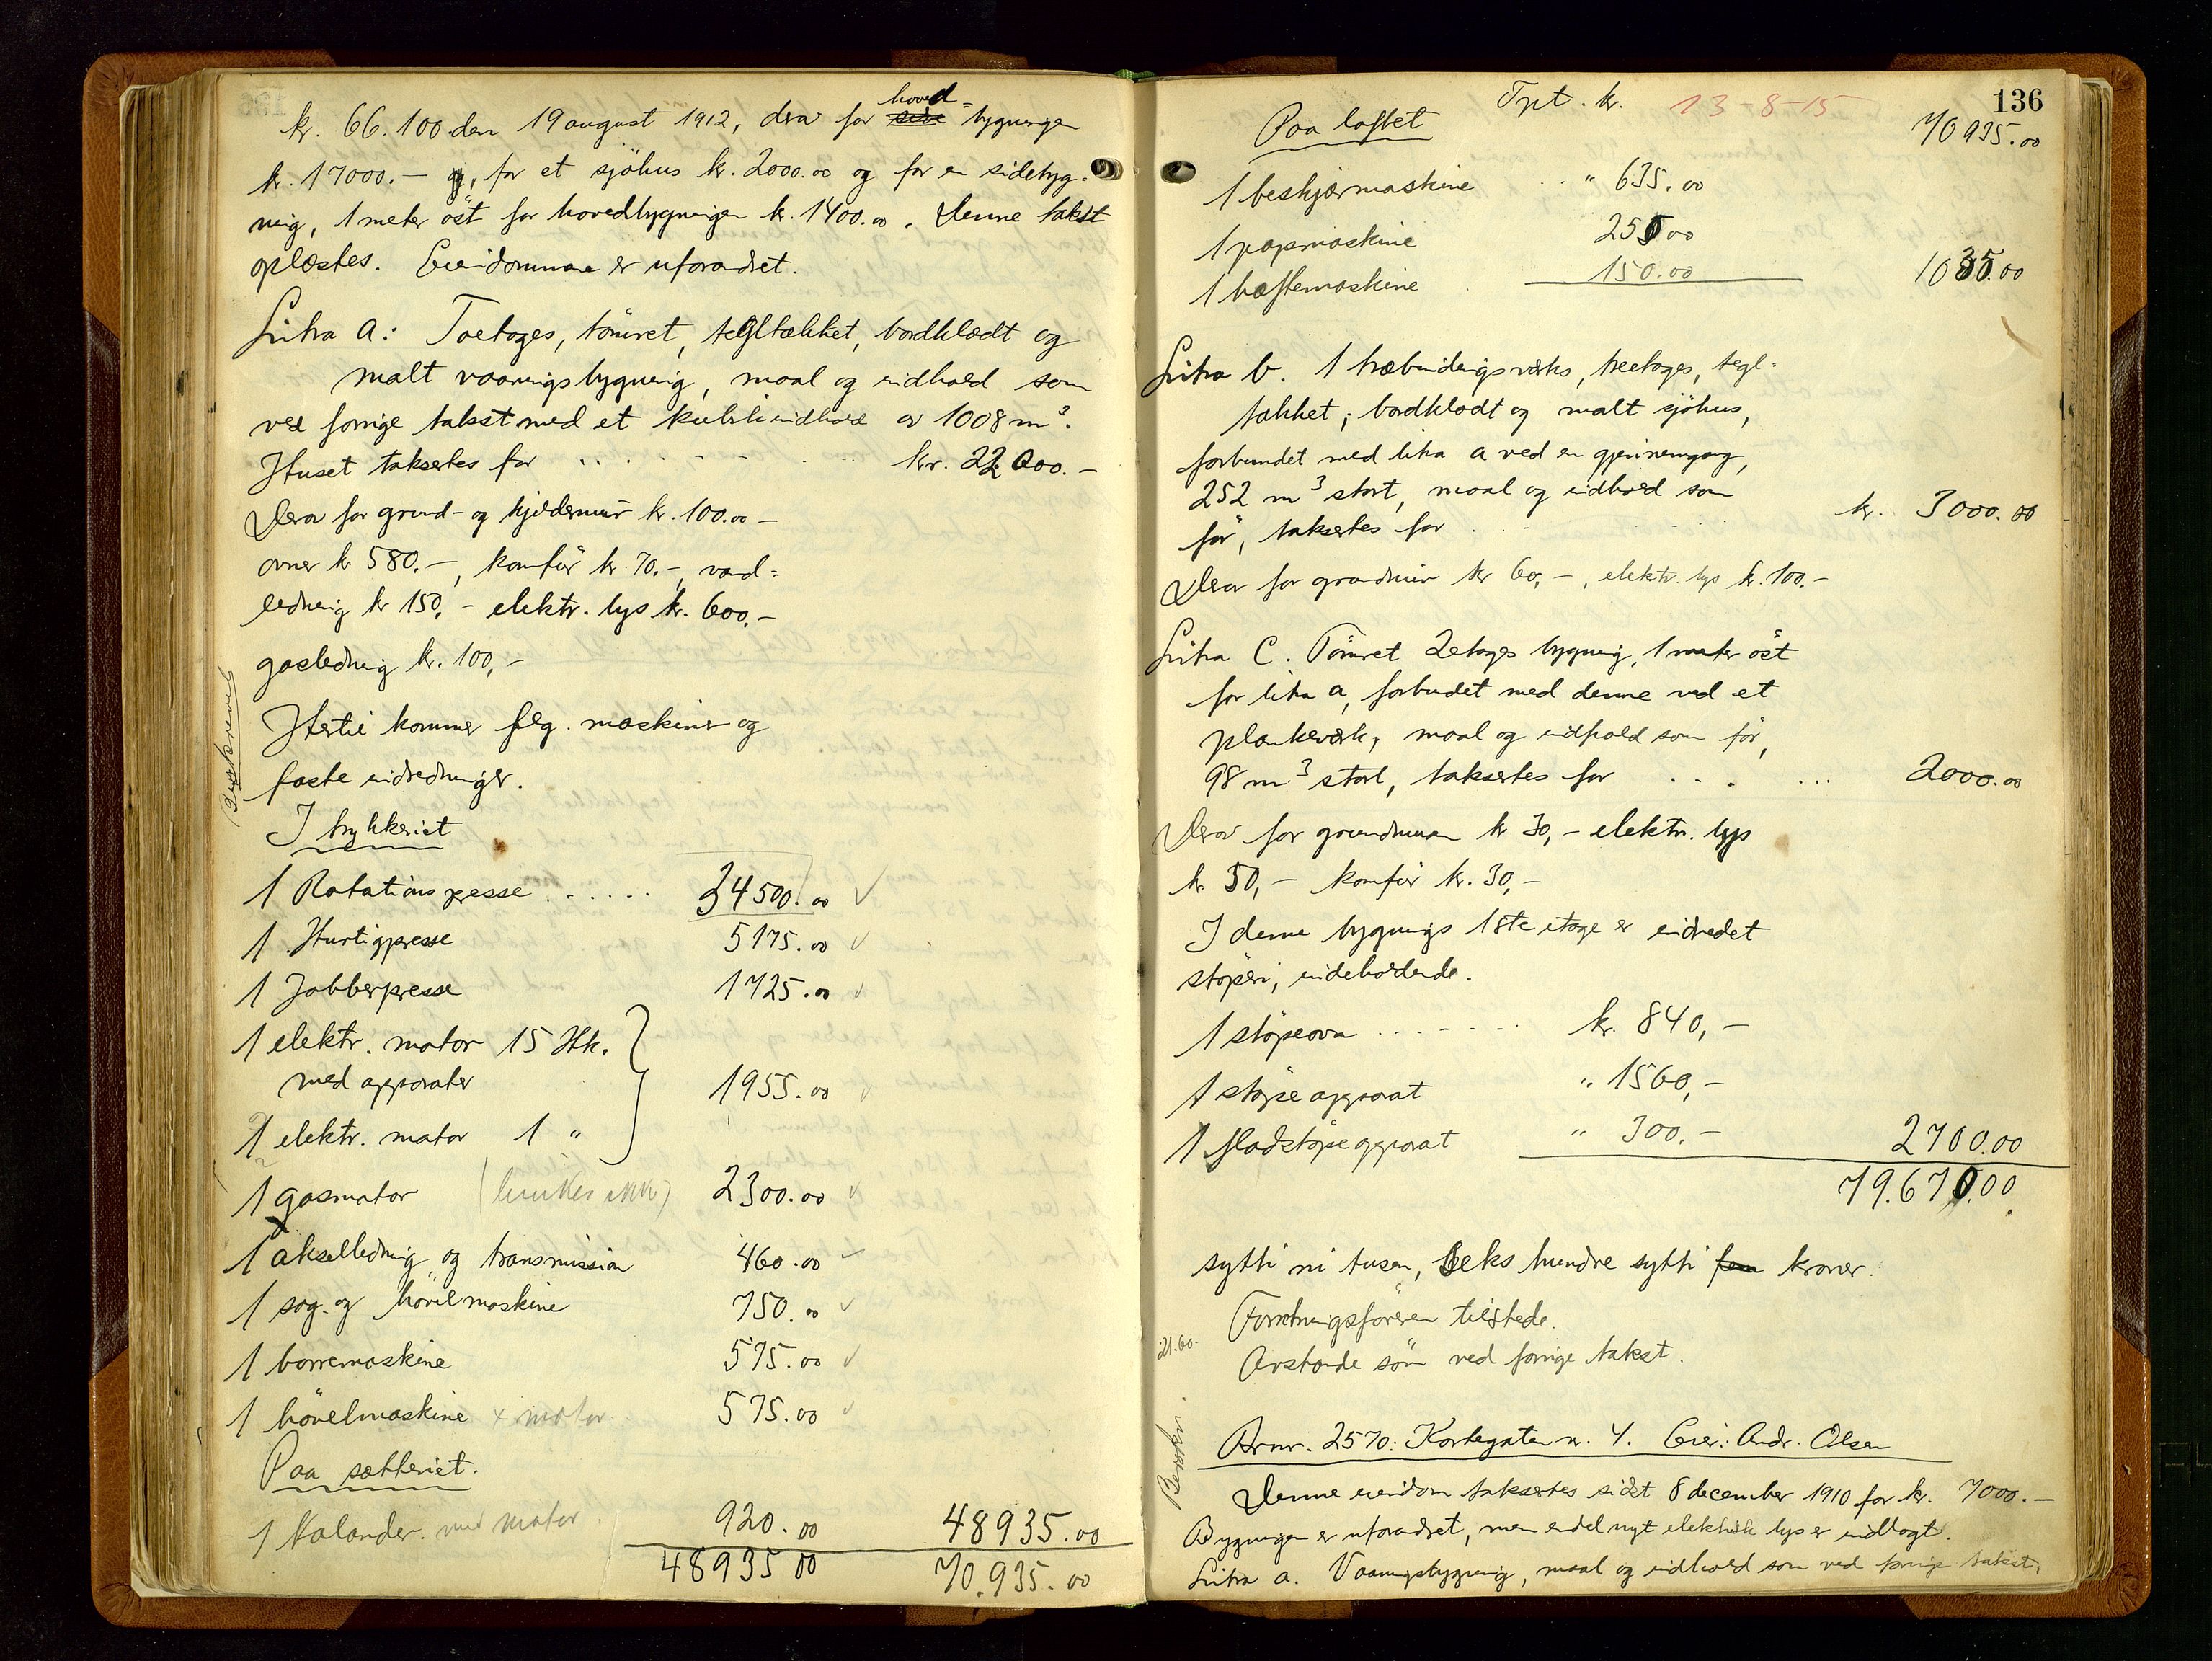 kr. 66.100 den 19 august 1912, derav for hoved= bygningen
kr. 17000.- og, for et sjöhus kr. 2000.00 og for en sidebyg-
ning, 1 meter öst for hovedbygningen kr. 1400.00. Denne takst
oplæstes. Eiendommene er uforandret.
Litra A: Toetages, tömret, tegltækket, bordklædt og
malt vaaningsbygning, maal og indhold som
ved forrige takst med et kubikindhold av 1008 m³.
Huset taksertes for . . . . . . . kr. 22.000.-
Derav for grund- og kjeldermur kr. 100.00 -
ovner kr 580.-, komfür kr 70.-, vand=
ledning kr 150,- elektr. lys kr. 600.-
gasledning kr. 100,-
Hertil kommer følg. maskiner og
faste indredninger.
I trykkeriet
1 Rotationspresse . . . . . 34500.00 ✓
1 Hurtigpresse 5175.00 ✓
1 Jobberpresse 1725.00 ✓
1 elektr. motor 15 Hk.
med apparater 1955.00 ✓
1 elektr. motor 1 "
1 gasmotor (brukes ikke) 2300.00 ✓
1 akselledning og transmission 460.00 ✓
1 sag- og hövelmaskine 750.00 ✓
1 borremaskine 575.00 ✓
1 hövelmaskine + motor 575.00 ✓
Paa sætteriet.
1 Kalander. med motor. 920.00 48935.00
48935 00 70.935.00
136
Tpt. kr. 13-8-15 70935.00
Paa loftet
1 beskjærmaskine . . " 635.00
1 papmaskine 250 00
1 hæftemaskine . 150.00 1035.00
Litra b. 1 træbindingsverks, treetages, tegl-
tækket, bordklædt og malt sjöhus,
forbundet med litra a ved en gjennemgang,
252 m³ stort, maal og indhold som
för, taksertes for . . . . kr. 3000.00
Derav for grundmur kr 60,-, elektr. lys kr. 100.-
Litra C. Tömret 2etages bygning, 1 meter öst
for litra a, forbundet med denne ved et
plankeverk, maal og indhold som för,
98 m³ stort, taksertes for . . . ... 2000.00
Derav for grundmuren kr 30,- elektr. lys
kr. 50,- komfür kr. 30,-
I denne bygnings 1ste etage er indredet
stöperi, indeholdende.
1 stöpeovn . . . . . . . kr. 840,-
1 stöpeapparat " 1560,-
1 fladstöpeapparat " 300.- 2700.00
79.670.00
sytti ni tusen, seks hundre sytti fem kroner.
Forretningsföreren tilstede.
21.60.
Avstande som ved forrige takst.
Brnr. 2570: Kortegaten nr. 4. Eier: Andr. Olsen
Denne eiendom taksertes sidst 8 december 1910 for kr. 7000.-
Bygningen er uforandret, men endel nyt elektrisk lys er indlagt.
Litra a. Vaaningsbygning, maal og indhold som ved forrige takst,